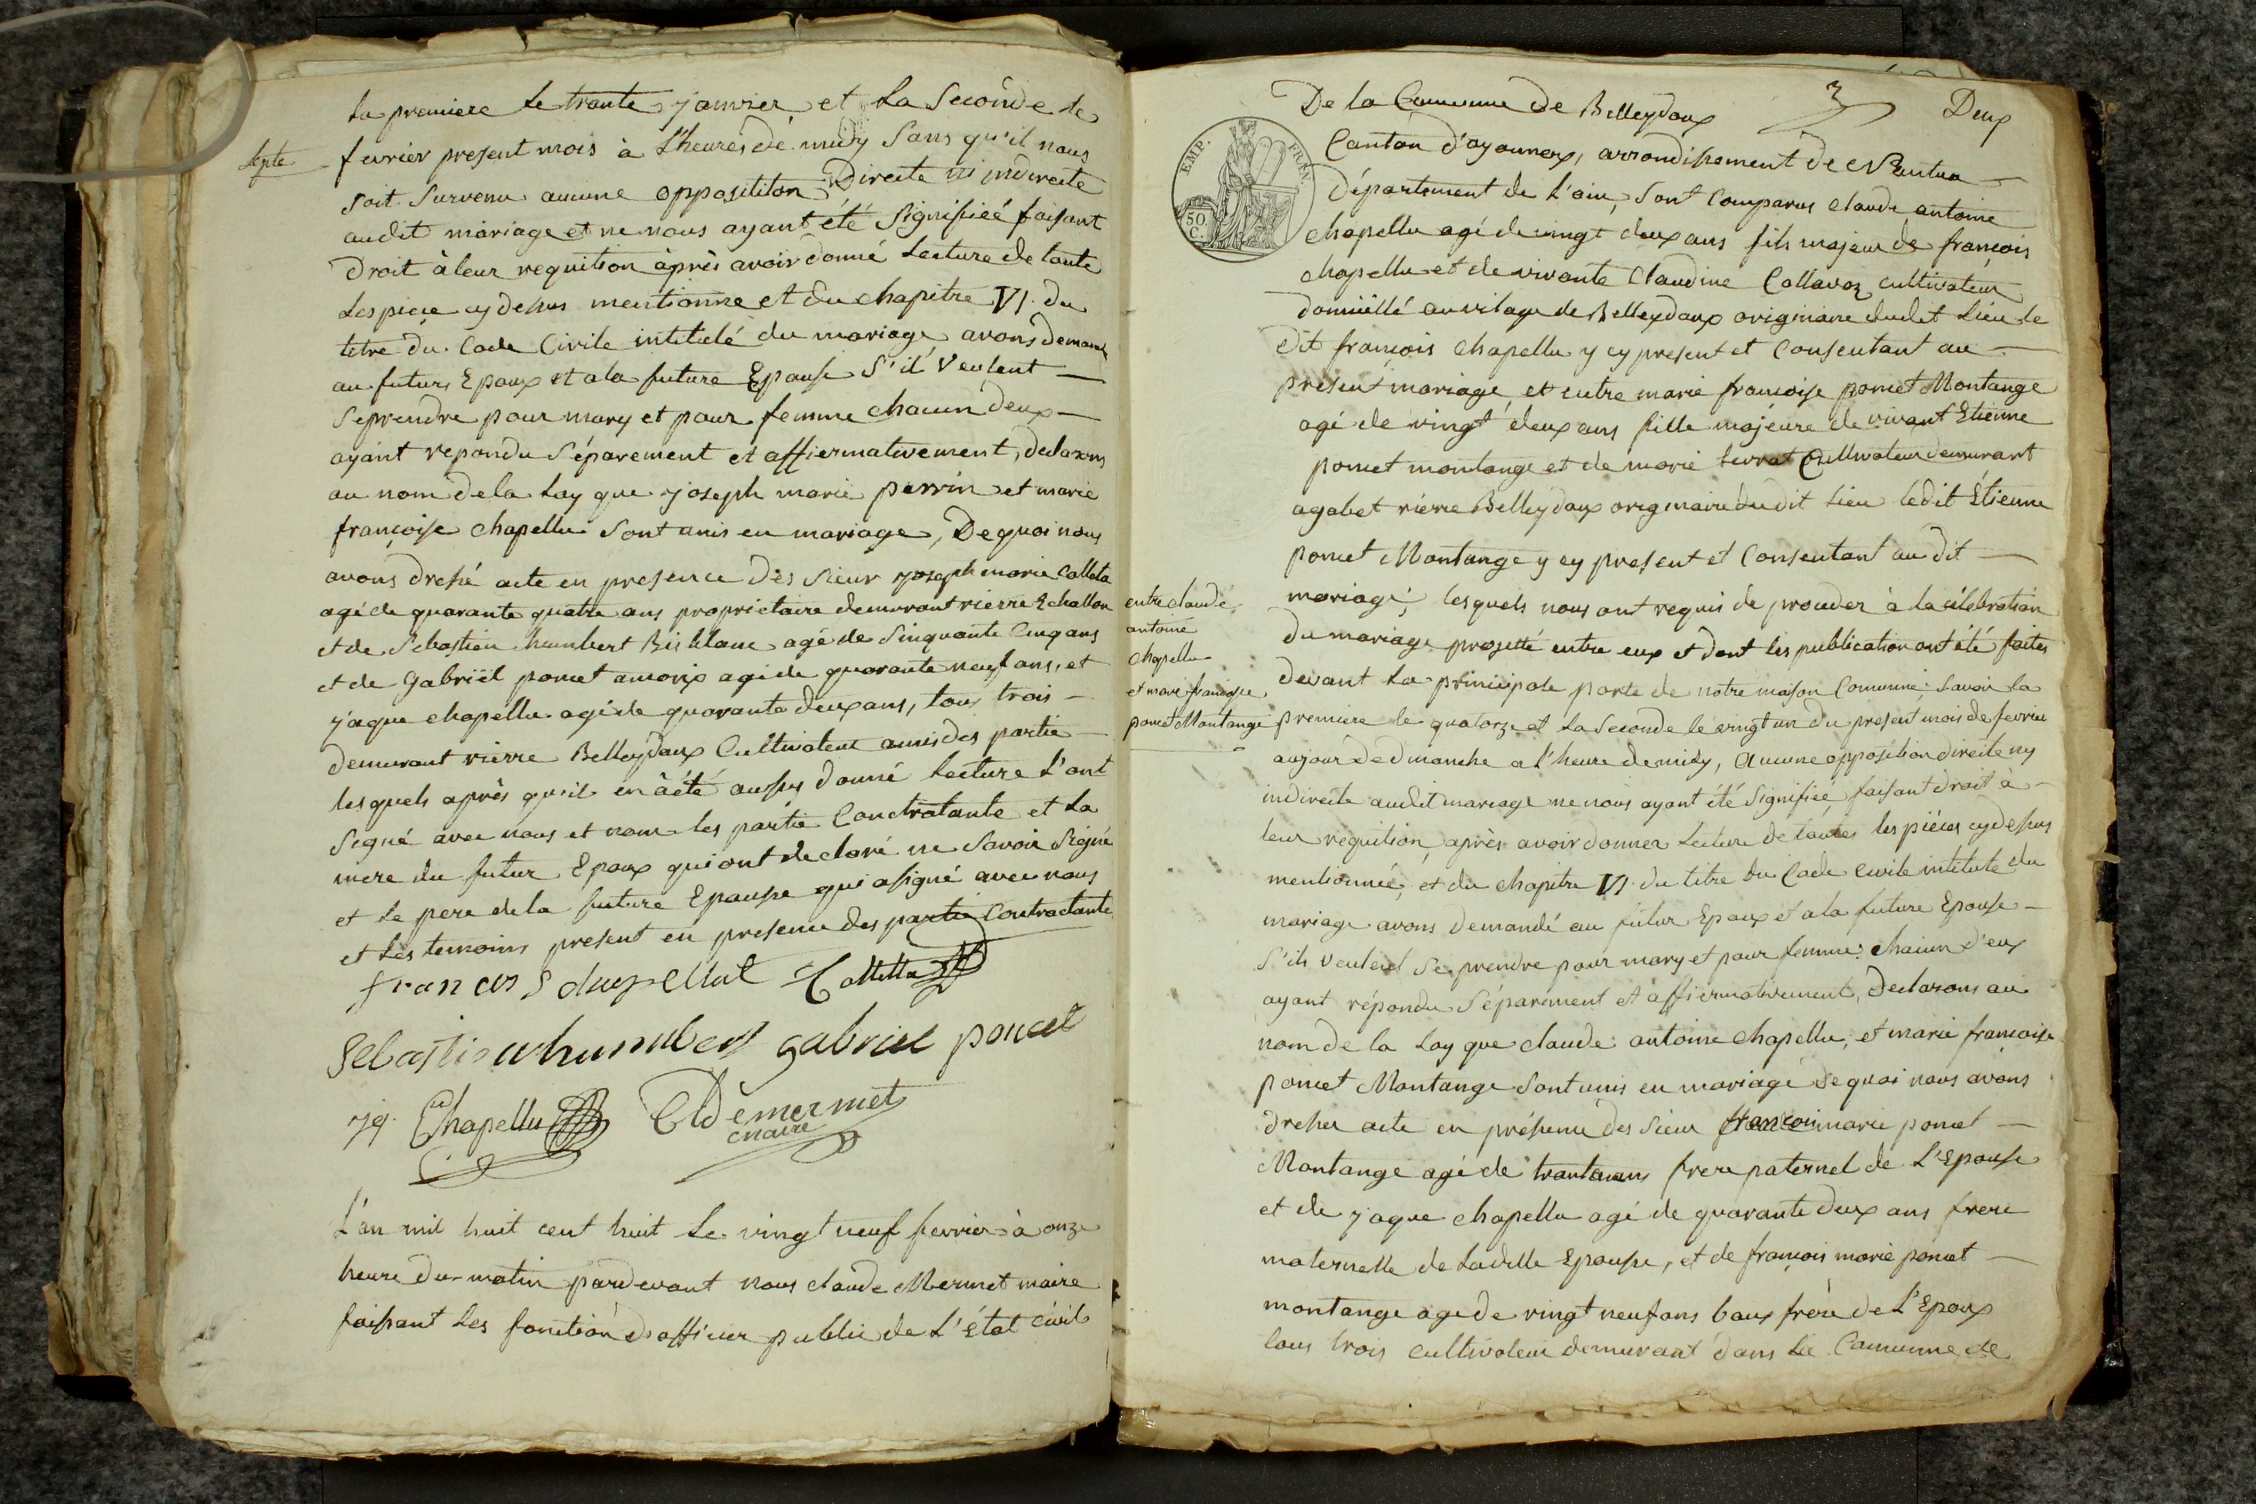 la premiere le trante janvier et la Seconde le
septe
fevrier present mois à L'heures de midy Sans qu'il nous
soit Survenu aucune opposititon Direcite ni indirecte
audit mariage et ne nous ayant été Signifieé faisant
Droit à leur requition après avoir donné Lecture de toute
Les piece cy dessus mentionne et du chapitre VI. du
titre du Code Civile intitulé du mariage avons demandé
au futurs Epoux et a la future Epouse S'il Veulent —
Se prendre pour mary et pour femme chacun deux —
ayant repondu Séparement et affiermativement, declarons
au nom de la Loy que joseph marie perrin et marie
françoise chapellu Sont unis en mariage, De quoi nous
avons dressé acte en presence des Sieur joseph marie Colleta
agé de quarante quatre ans proprietaire demurant rierre Echallon
et de Sébastien humbert Bis blanc agé de Sinquante Cinq ans
et de Gabriël poncet amorix agé de quarante neuf ans, et
jaque chapellu agé de quarante deux ans, tous trois —
demurant rierre Belleydoux Cultivateur amis des partie —
les quels après qu'il en à été aussy donné lecture L'ont
Signé avec nous et nom les partie Contratante et la
mere du futur Epoux qui ont declaré ne Savoir Signé
et le pere de la future Epouse qui a signé avec nous
et les temoins present en presence des partie Contractante
francois Chapellut Colletta
Sebastien humbert gabriel poncet
Jq. Chapellu Cld Mermet
maire
L'an mil huit cent huit Le vingt neuf fevrier à onze
heure du matin pardevant nous claude Mermet maire
faissant Les fonction d'officier public de L'état civil
De la Commune de Belleydoux
3
Deux
EMP. FRAN.
50 C.
Canton d'oyonnax, arrondissement de Nantua —
Département de L'ain, Sont Comparus claude antoine
chapellu agé de vingt deux ans fils majeur de francois
chapellu et de vivante Claudine Collavoz cultivateur
domicillé au vilage de Belleydoux originaire dudit Lieu le
Dit françois chapellu y cy present et Consentant au —
présent mariage et entre marie francoise poncet Montange
agé de vingt deux ans fille majeure de vivant Etienne
poncet montange et de marie Cultivateur demurant
agobet rierre Belleydoux originaire du dit Lieu ledit Étienne
poncet Montange y cy present et Consentant au dit —
mariage, lesquels nous ont requis de proceder à la célébration
du mariage projetté entre eux et dont les publication ont été faites
devant la principale porte de notre maison Comunne; Savoir la
premiere le quatorze et La Seconde le vingt un du present mois de fevrier
entre claude
antoine
chapellu
et marie francoise
poncet Montange
aujour de dimanche a l'heure de midy, aucune opposition directe ny
indirecte audit mariage ne nous ayant été Signifieé, faisant droit à —
leur requition, après avoir donner Lecture de toutes les piéces cy dessus
mentionnée, et du chapitre VI. du titre du Code civile intitule du
mariage avons demandé au futur Epoux et a la future Epouse —
S'ils veulent Se prendre pour mary et pour femme: chacun d'eux
ayant répondu Séparement et affiermativement, declarons au
nom de la Loy que claude antoine chapellu, et marie francoise
poncet Montange Sont unis en mariage de quoi nous avons
dresser acte en présence des Sieur francoi marie poncet —
Montange agé de trante ans frere paternel de L'Epouse
et de jaque chapellu agé de quarante deux ans frere
maternelle de Ladille Epouse, et de françois marie poncet —
montange agé de vingt neuf ans baux frere de L'Epoux
tous trois cultivateur demurant dans La Commune de